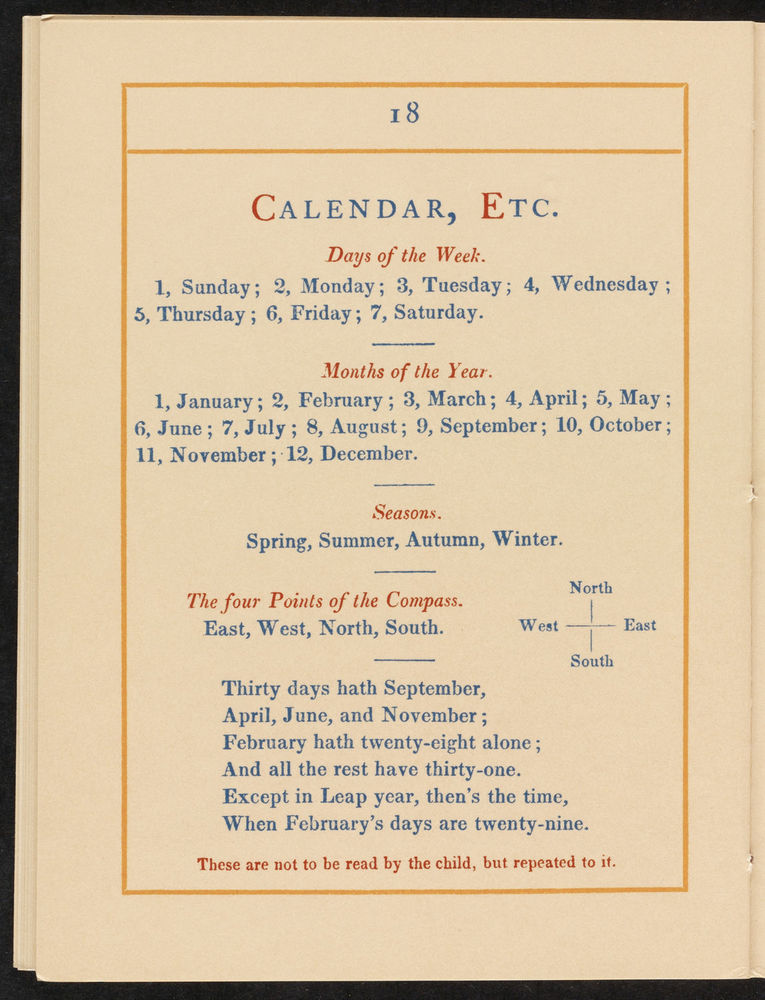 18
CALENDAR, ETC.
Days of the Week.
1, Sunday; 2, Monday; 3, Tuesday; 4, Wednesday;
5, Thursday; 6, Friday; 7, Saturday.
Months of the Year.
1, January; 2, February; 3, March; 4, April; 5, May;
6, June; 7, July; 8, August; 9, September; 10, October;
11, November; 12, December.
Seasons.
Spring, Summer, Autumn, Winter.
The four Points of the Compass.
East, West, North, South.
North
West East
South
Thirty days hath September,
April, June, and November;
February hath twenty-eight alone;
And all the rest have thirty-one.
Except in Leap year, then's the time,
When February's days are twenty-nine.
These are not to be read by the child, but repeated to it.